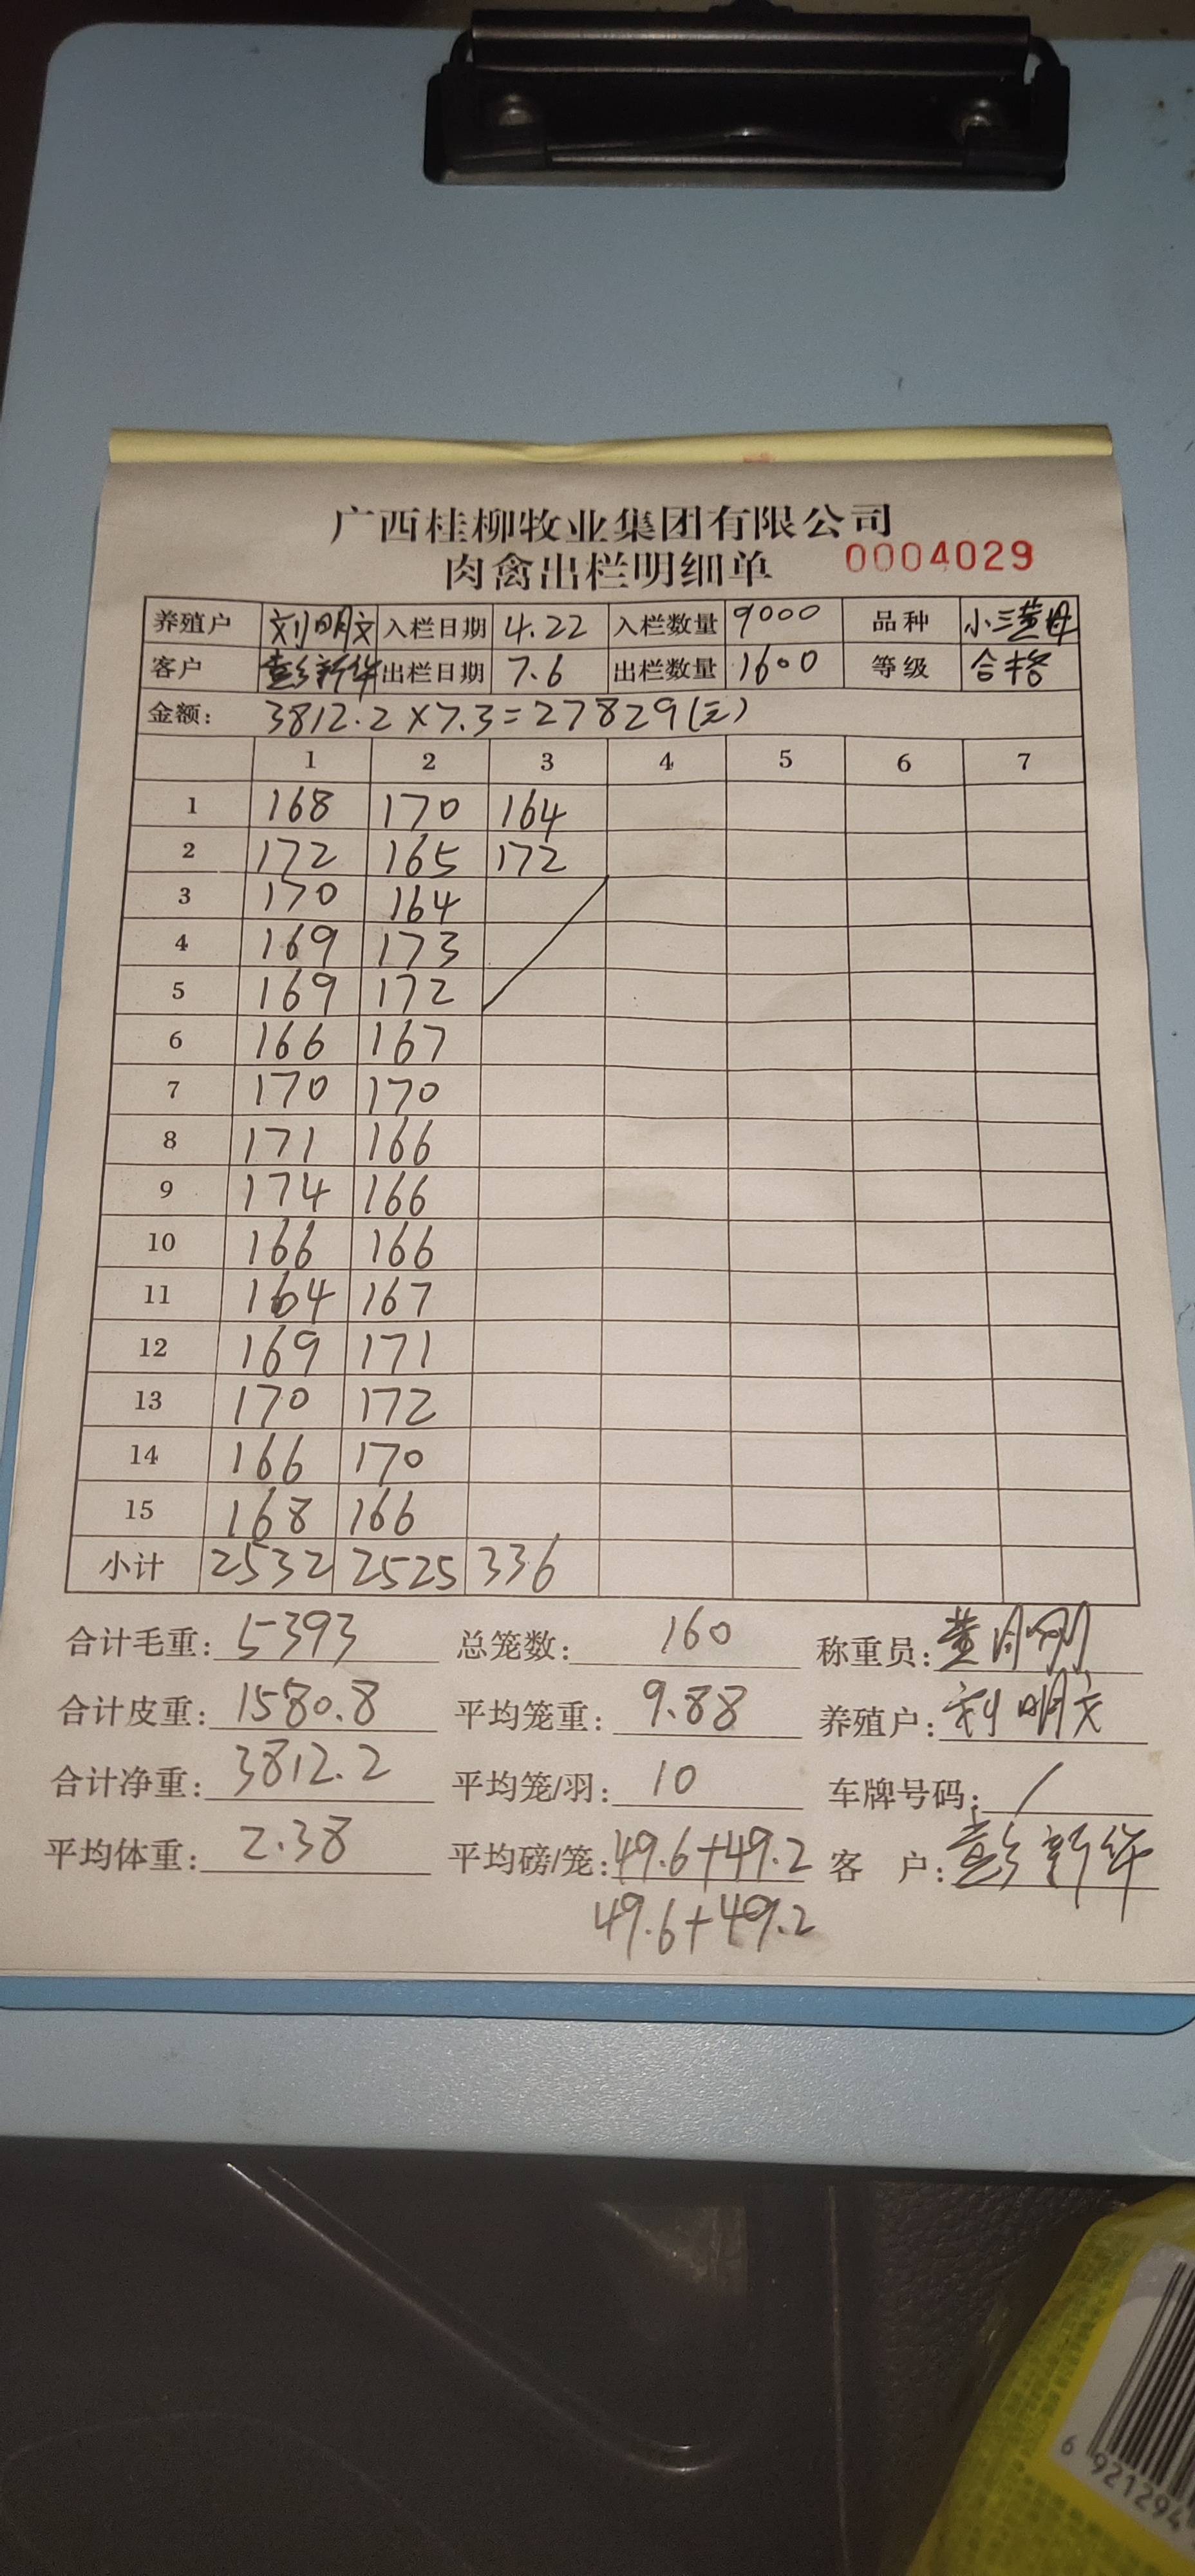 广西桂柳牧业集团有限公司
肉禽出栏明细单 0004029
养殖户 刘明文 入栏日期 4.22 入栏数量 9000 品种 小三黄母
客户 彭新华 出栏日期 7.6 出栏数量 1600 等级 合格
金额: 3812.2×7.3=27829(元)
1 2 3 4 5 6 7
1 168 170 164
2 172 165 172
3 170 164
4 169 173
5 169 172
6 166 167
7 170 170
8 171 166
9 174 166
10 166 166
11 164 167
12 169 171
13 170 172
14 166 170
15 168 166
小计 2532 2525 336
合计毛重: 5393 总笼数: 160 称重员: 黄月刚
合计皮重: 1580.8 平均笼重: 9.88 养殖户: 刘明文
合计净重: 3812.2 平均笼/羽: 10 车牌号码: /
平均体重: 2.38 平均磅/笼: 49.6+49.2 客 户: 彭新华
49.6+49.2
6 921294